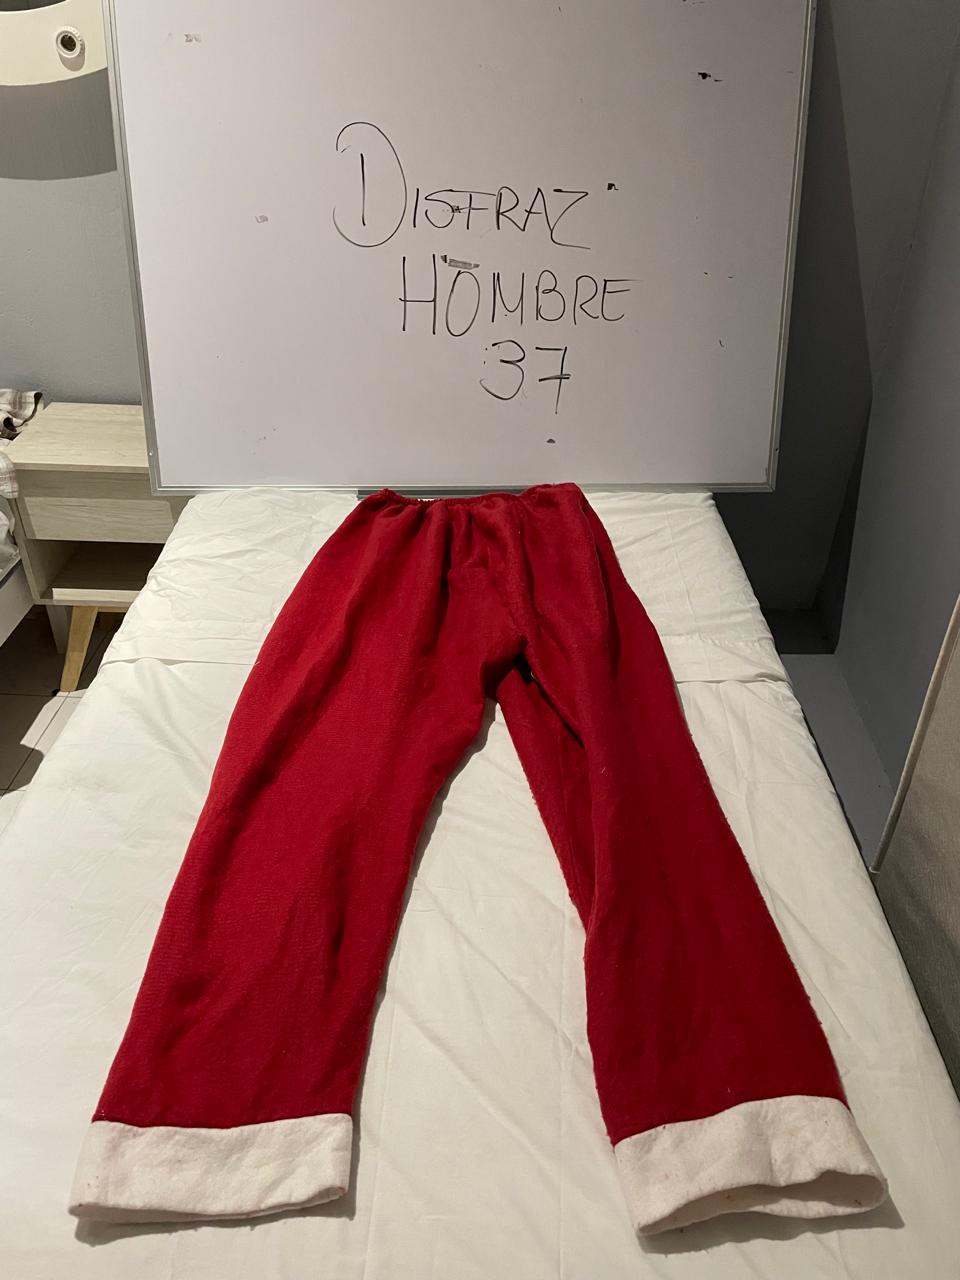 DISFRAZ
HOMBRE
37